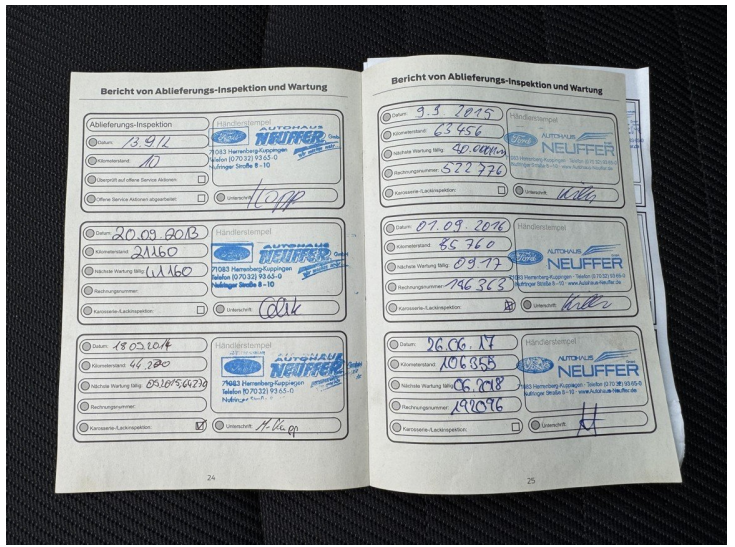 Bericht von Ablieferungs-Inspektion und Wartung
Ablieferungs-Inspektion
Händlerstempel
Datum: 13.9/12
Kilometerstand: 10
Überprüft auf offene Service Aktionen:
Offene Service Aktionen abgearbeitet:
Ford AUTOHAUS
NEUFFER GmbH
71083 Herrenberg-Kuppingen
Telefon (07032) 9365-0
Nufringer Straße 8 - 10
Unterschrift:
Datum: 20.09.2013
Kilometerstand: 21160
Nächste Wartung fällig: 41160
Rechnungsnummer:
Karosserie-/Lackinspektion:
Händlerstempel
AUTOHAUS
NEUFFER GmbH
71083 Herrenberg-Kuppingen
Telefon (07032) 9365-0
Nufringer Straße 8 - 10
Unterschrift:
Datum: 18.09.2014
Kilometerstand: 44.270
Nächste Wartung fällig: 09.2015, 64270
Rechnungsnummer:
Karosserie-/Lackinspektion:
Händlerstempel
AUTOHAUS
NEUFFER
71083 Herrenberg-Kuppingen
Telefon (07032) 9365-0
Nufringer Straße 8 - 10
Unterschrift: M. Kapp
24
Bericht von Ablieferungs-Inspektion und Wartung
Datum: 9.3 2015
Kilometerstand: 63456
Nächste Wartung fällig:
Rechnungsnummer: 522776
Karosserie-/Lackinspektion:
Händlerstempel
Ford AUTOHAUS
NEUFFER
71083 Herrenberg-Kuppingen - Telefon (07032) 9365-0
Nufringer Straße 8 - 10 - www.Autohaus-Neuffer.de
Unterschrift:
Datum: 01.09.2016
Kilometerstand: 85760
Nächste Wartung fällig: 09.17
Rechnungsnummer: 186363
Karosserie-/Lackinspektion:
Händlerstempel
Ford AUTOHAUS
NEUFFER
71083 Herrenberg-Kuppingen - Telefon (07032) 9365-0
Nufringer Straße 8 - 10 - www.Autohaus-Neuffer.de
Unterschrift:
Datum: 26.06.17
Kilometerstand: 106355
Nächste Wartung fällig: 06.2018
Rechnungsnummer: 192096
Karosserie-/Lackinspektion:
Händlerstempel
Ford AUTOHAUS
NEUFFER
71083 Herrenberg-Kuppingen - Telefon (07032) 9365-0
Nufringer Straße 8 - 10 - www.Autohaus-Neuffer.de
Unterschrift:
25